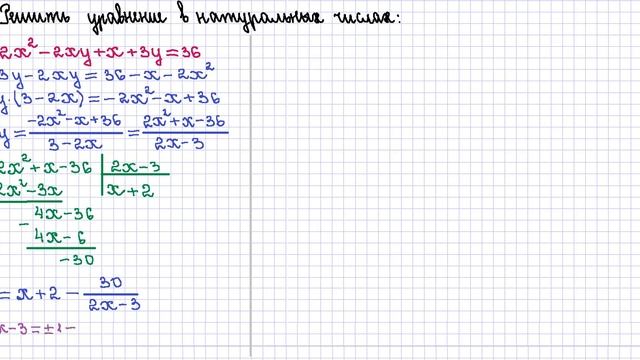 Решить уравнение в натуральных числах:
2x² - 2xy + x + 3y = 36
3y - 2xy = 36 - x - 2x²
y·(3 - 2x) = -2x² - x + 36
y = (-2x² - x + 36)/(3 - 2x) = (2x² + x - 36)/(2x - 3)
2x² + x - 36 | 2x - 3
2x² - 3x | x + 2
- 4x - 36
4x - 6
-30
= x + 2 - 30/(2x - 3)
x - 3 = ±1 -